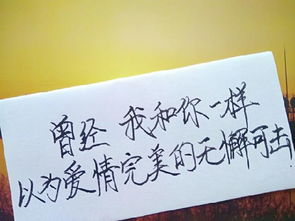 曾经 我和你一样
以为爱情完美的无懈可击